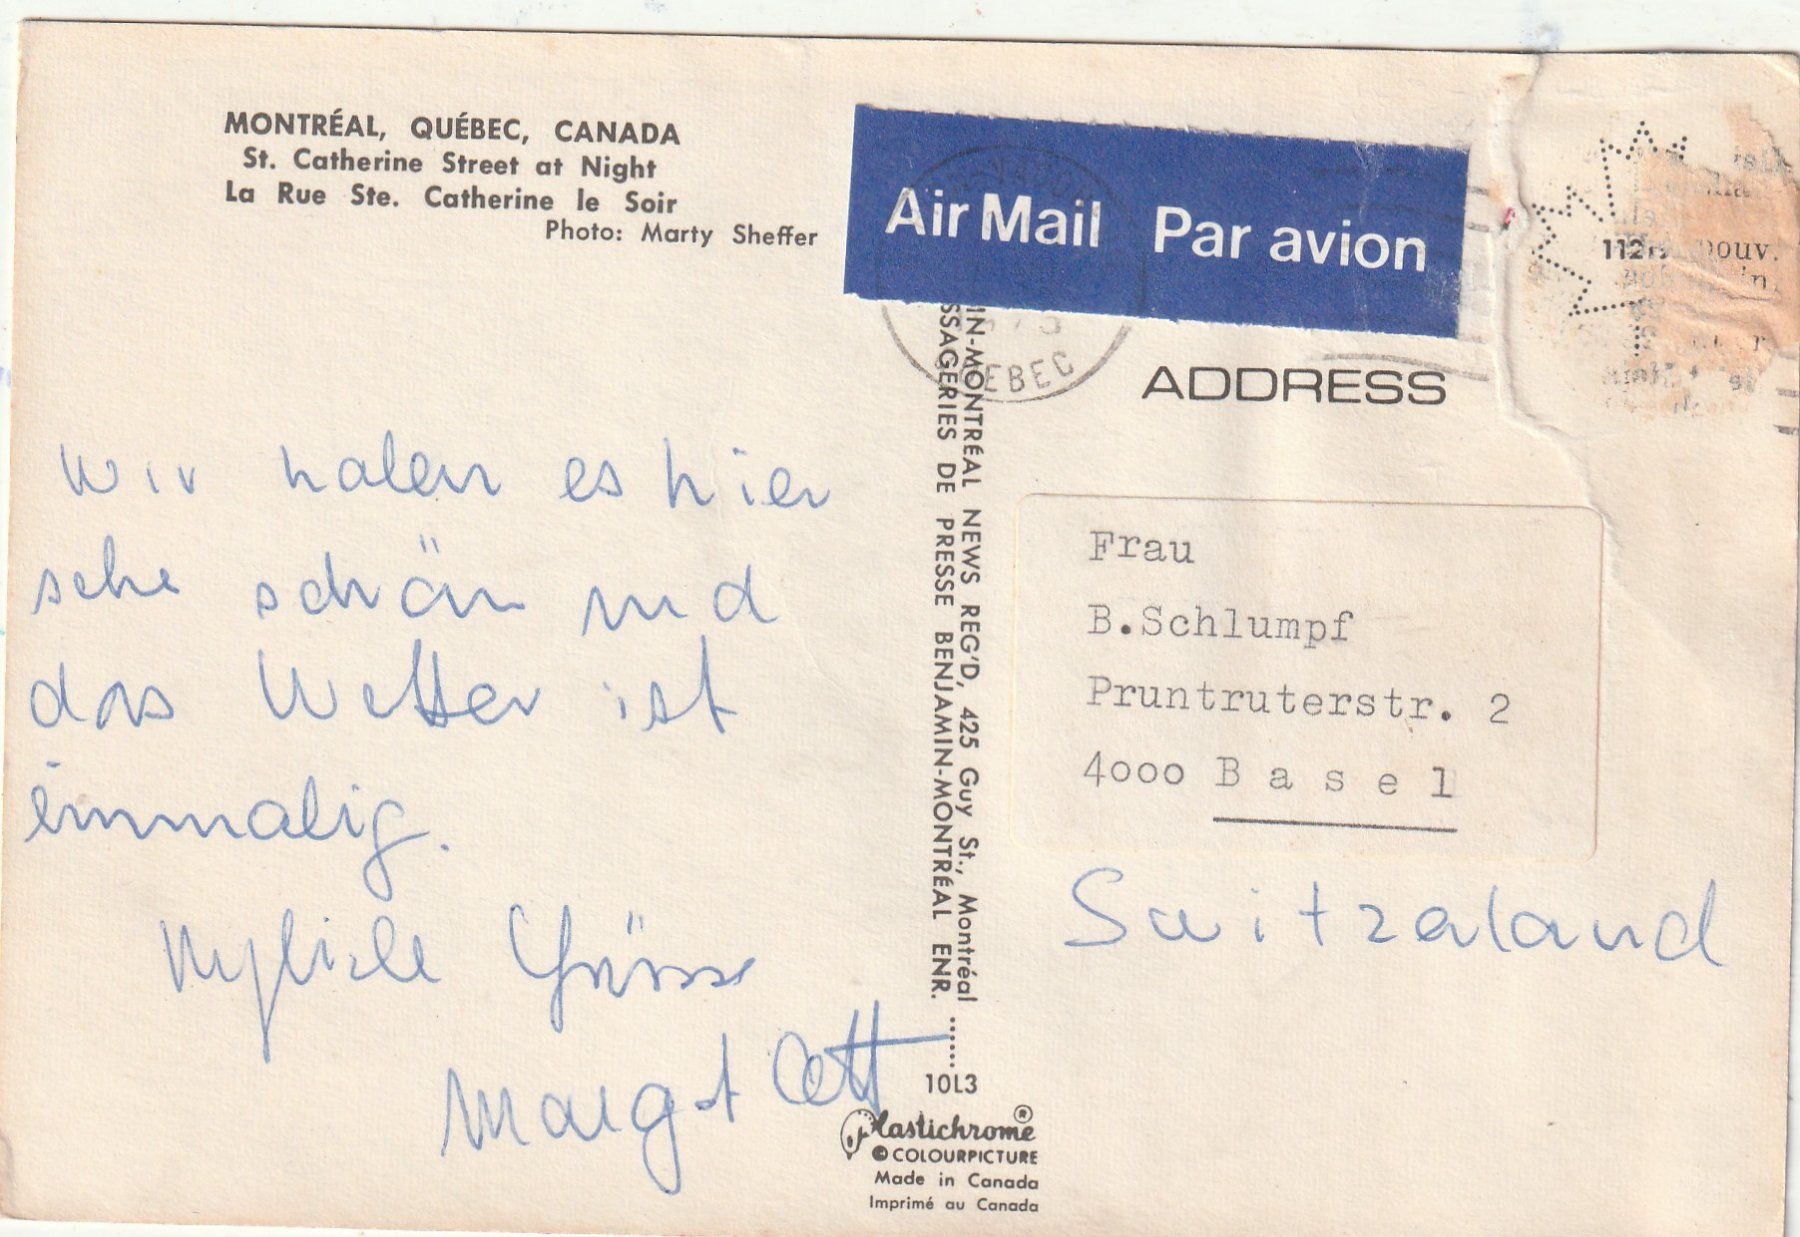 MONTRÉAL, QUÉBEC, CANADA
St. Catherine Street at Night
La Rue Ste. Catherine le Soir
Photo: Marty Sheffer
Air Mail Par avion
QUEBEC
ADDRESS
wir haben es hier
sehr schön und
das Wetter ist
einmalig.
Grüsse
Margot Ott
IN-MONTRÉAL NEWS REG'D, 425 Guy St., Montréal
SSAGERIES DE PRESSE BENJAMIN-MONTRÉAL ENR.
10L3
Plastichrome ®
© COLOURPICTURE
Made in Canada
Imprimé au Canada
Frau
B.Schlumpf
Pruntruterstr. 2
4000 Basel
Switzerland
112
pouv.